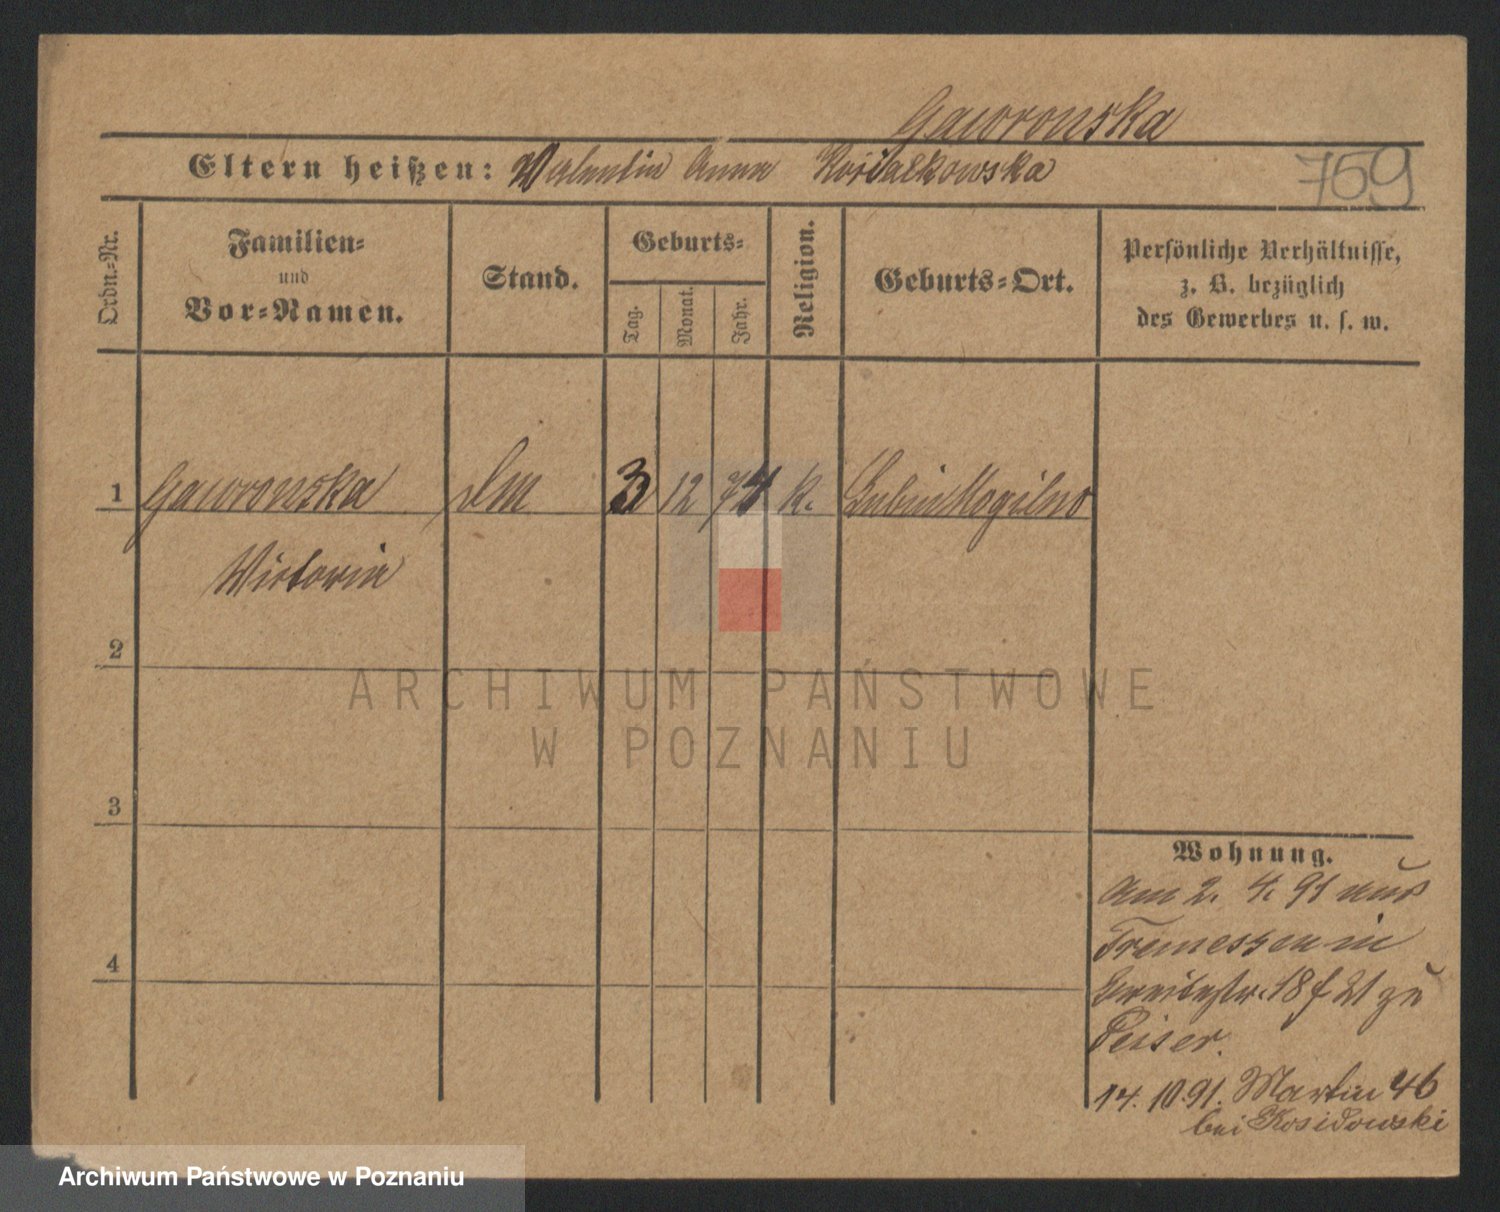 Gaworonska
Eltern heißen: Valentin Anna Kosialkowska
759
Ordn.-Nr.
Familien-
und
Vor-Namen.
Stand.
Geburts-
Tag.
Monat.
Jahr.
Religion.
Geburts-Ort.
Persönliche Verhältnisse,
z. B. bezüglich
des Gewerbes u. s. w.
1 Gaworonska Dm 3 12 74 k. Lubin Mogilno
Victoria
2
3
4
Wohnung.
Am 2. 4. 91 aus
Tremessen in
Breitestr. 18 f 21 zu
Peiser.
14. 10. 91. Martin 46
bei Kosidowski
ARCHIWUM PAŃSTWOWE
W POZNANIU
Archiwum Państwowe w Poznaniu